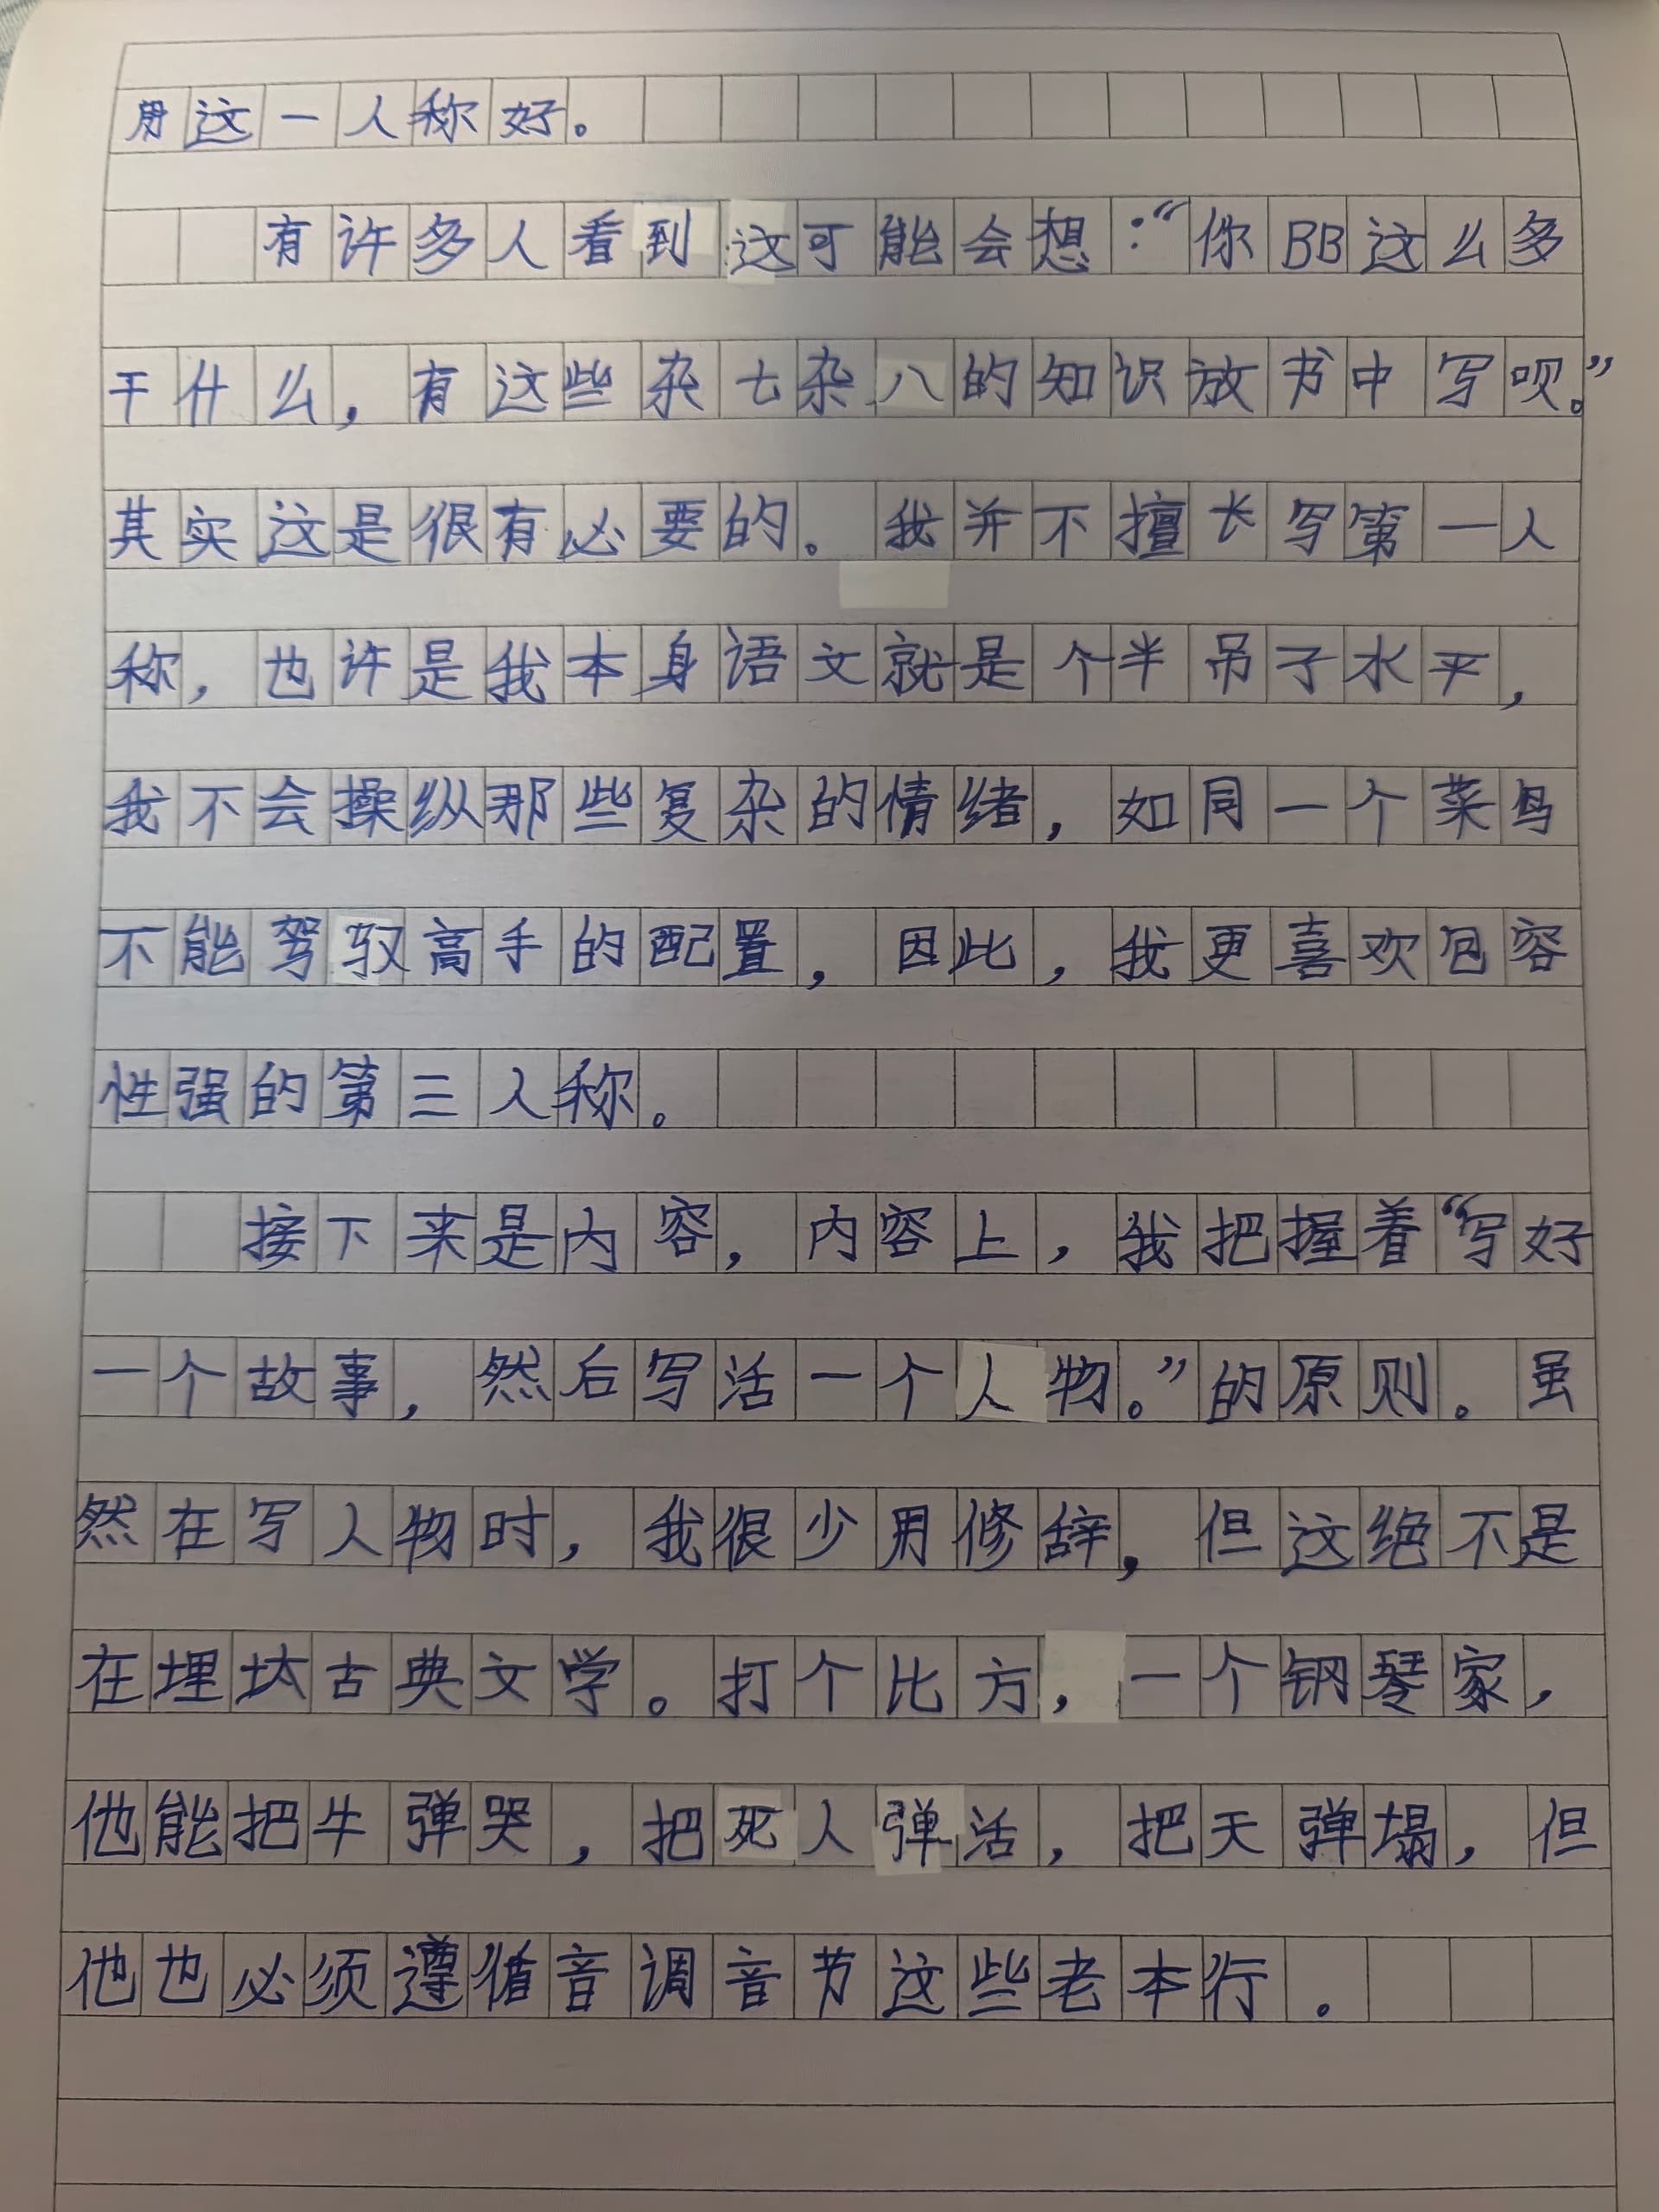 用这一人称好。
有许多人看到这可能会想：“你BB这么多
干什么，有这些杂七杂八的知识放书中写呗。”
其实这是很有必要的。我并不擅长写第一人
称，也许是我本身语文就是个半吊子水平，
我不会操纵那些复杂的情绪，如同一个菜鸟
不能驾驭高手的配置，因此，我更喜欢包容
性强的第三人称。
接下来是内容，内容上，我把握着“写好
一个故事，然后写活一个人物。”的原则。虽
然在写人物时，我很少用修辞，但这绝不是
在埋汰古典文学。打个比方，一个钢琴家，
他能把牛弹哭，把死人弹活，把天弹塌，但
他也必须遵循音调音节这些老本行。